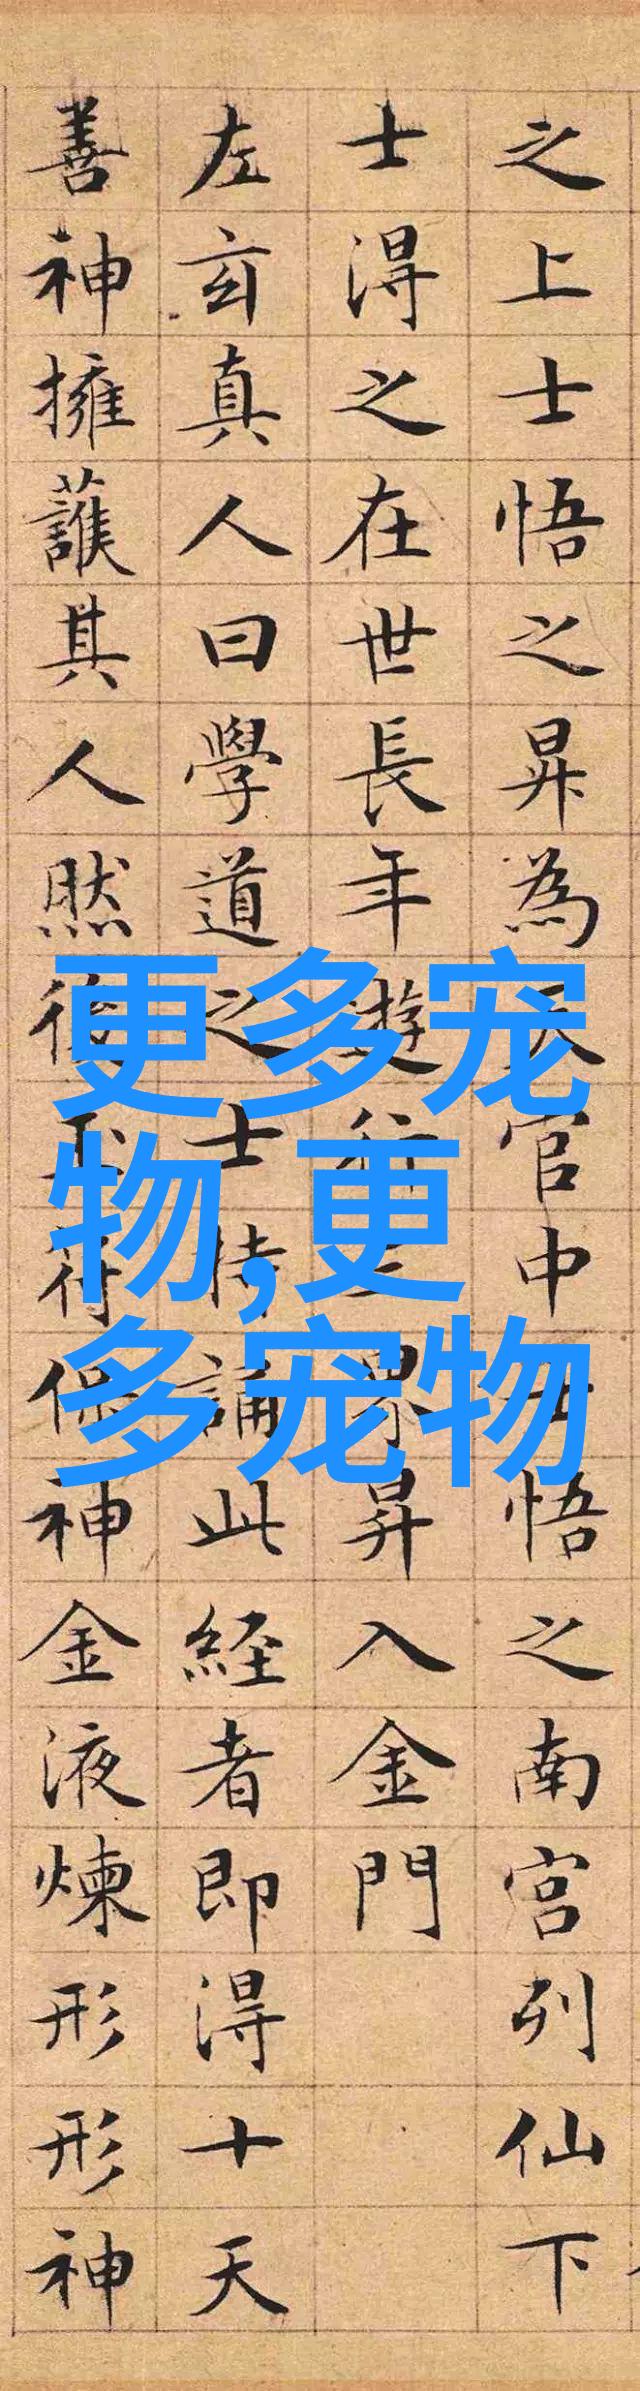 之上士悟之昇為天官中士悟之南宮列仙下
士得之在世長年遊行三界昇入金門
左玄真人曰學道之士持誦此経者即得十天
善神擁護其人然後玉符保神金液煉形形神
更多宠
物,更
多宠物